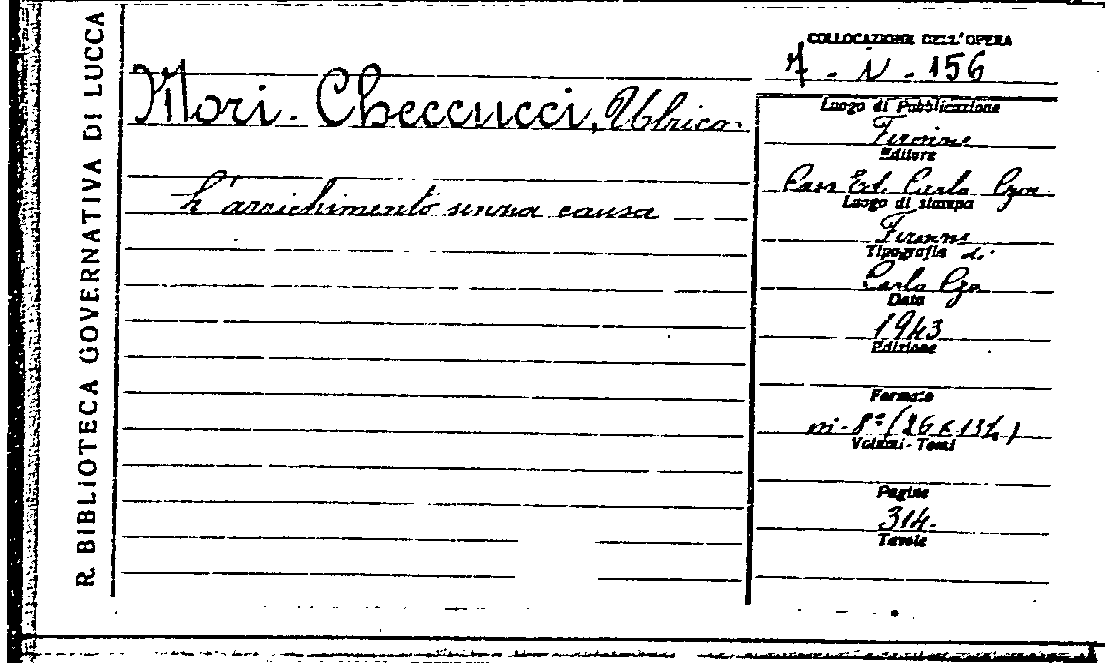 R. BIBLIOTECA GOVERNATIVA DI LUCCA
COLLOCAZIONE DELL'OPERA
7 - N - 156
Mori - Checcucci, Ulrico.
L'arrichimento senza causa
Luogo di Pubblicazione
Firenze
Editore
Casa Ed. Carlo Cya
Luogo di stampa
Firenze
Tipografia di
Carlo Cya
Data
1943
Edizione
Formato
in-8º (26 x 13½)
Volumi - Tomi
Pagine
314.
Tavole